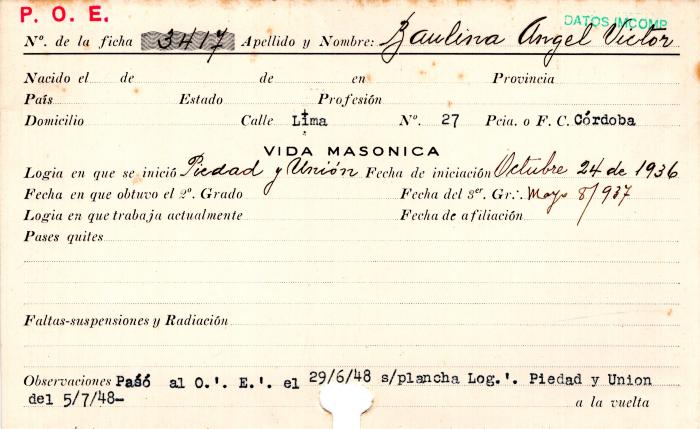 P. O. E.
DATOS IMCOMP
Nº. de la ficha 3417 Apellido y Nombre: Baulina Angel Victor
Nacido el de de en Provincia
País Estado Profesión
Domicilio Calle Lima Nº. 27 Pcia. o F. C. Córdoba
VIDA MASONICA
Logia en que se inició Piedad y Unión Fecha de iniciación Octubre 24 de 1936
Fecha en que obtuvo el 2º. Grado Fecha del 3er. Gr∴ Mayo 8/937
Logia en que trabaja actualmente Fecha de afiliación
Pases quites
Faltas-suspensiones y Radiación
Observaciones Pasó al O.'. E.'. el 29/6/48 s/plancha Log.'. Piedad y Union
del 5/7/48-
a la vuelta